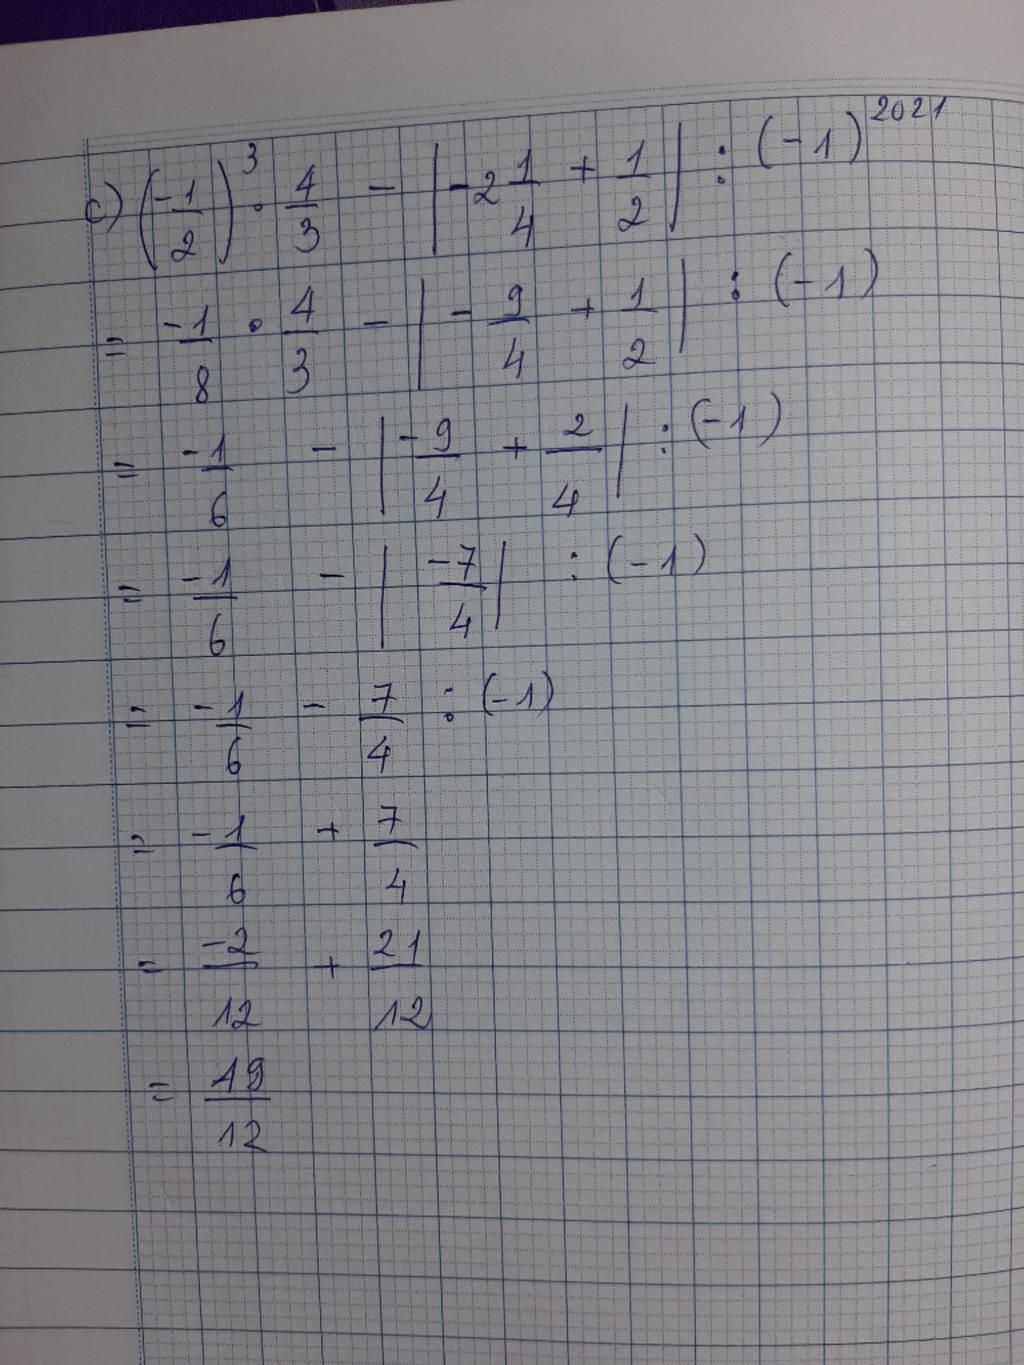 c) (-1/2)^3 · 4/3 - |-2 1/4 + 1/2| : (-1)^2021
= -1/8 · 4/3 - |-9/4 + 1/2| : (-1)
= -1/6 - |-9/4 + 2/4| : (-1)
= -1/6 - |-7/4| : (-1)
= -1/6 - 7/4 : (-1)
= -1/6 + 7/4
= -2/12 + 21/12
= 19/12